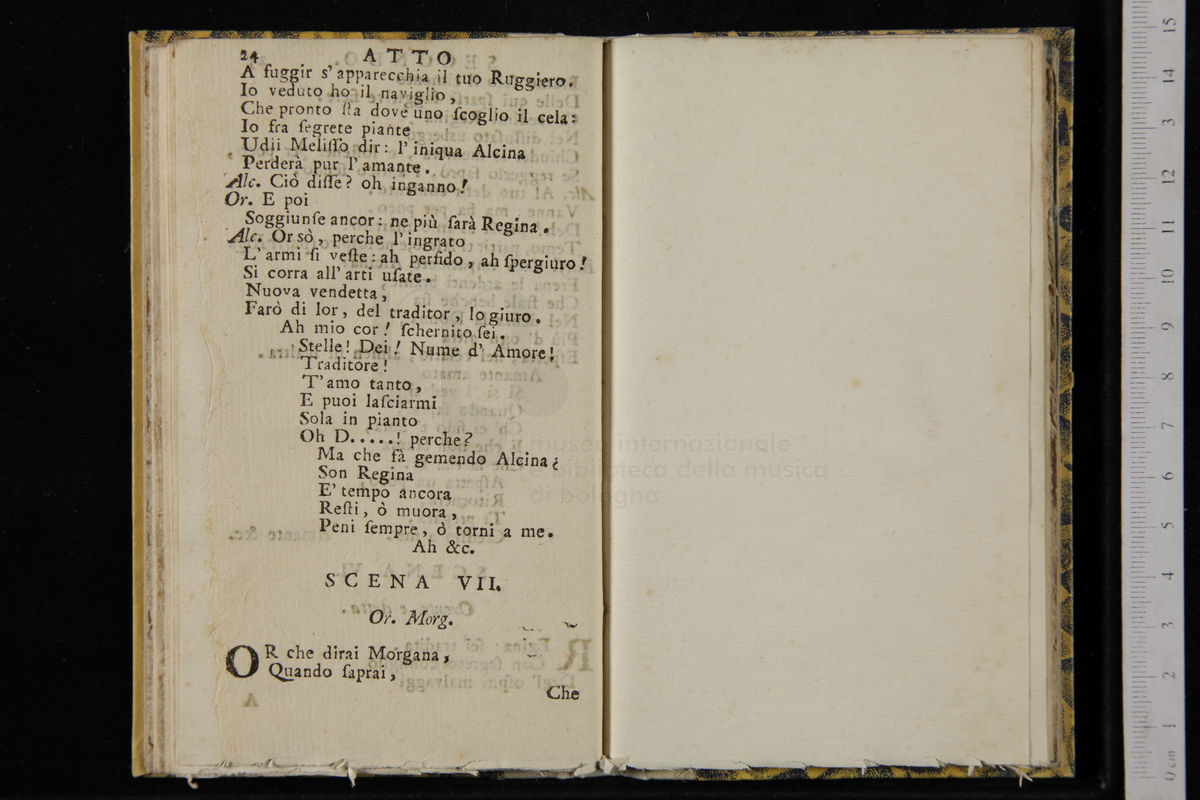 24 ATTO
A fuggir s' apparecchia il tuo Ruggiero.
Io veduto ho il naviglio,
Che pronto ſta dove uno ſcoglio il cela:
Io fra ſegrete piante
Udii Meliſſo dir: l' iniqua Alcina
Perderà pur l' amante.
Alc. Ciò diſſe? oh inganno!
Or. E poi
Soggiunſe ancor: ne più ſarà Regina.
Alc. Or sò, perche l' ingrato
L' armi ſi veſte: ah perfido, ah ſpergiuro!
Si corra all' arti uſate.
Nuova vendetta,
Farò di lor, del traditor, lo giuro.
Ah mio cor! ſchernito ſei.
Stelle! Dei! Nume d' Amore!
Traditore!
T' amo tanto,
E puoi laſciarmi
Sola in pianto
Oh D.....! perche?
Ma che fà gemendo Alcina¿
Son Regina
E' tempo ancora
Reſti, ò muora,
Peni ſempre, ò torni a me.
Ah &c.
SCENA VII.
Or. Morg.
OR che dirai Morgana,
Quando ſaprai,
Che
museo internazionale
e biblioteca della musica
di bologna
15
14
3
12
11
10
9
8
7
6
5
4
3
2
1
0 cm